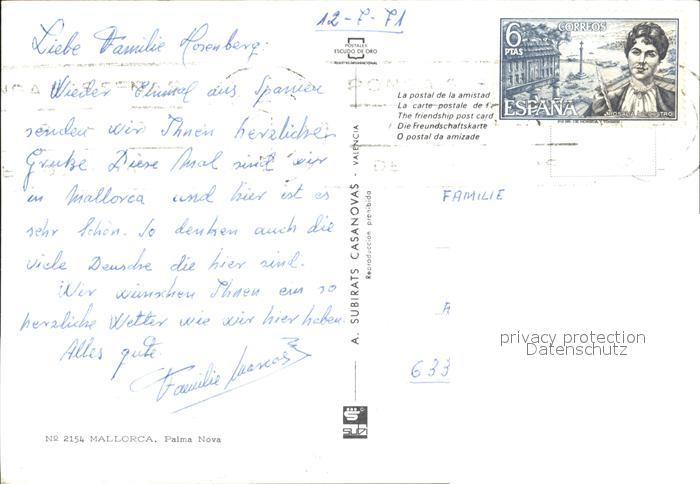 12-7-71
Liebe Familie Rosenberg:
Wieder Einmal aus Spanien
senden wir Ihnen herzlichen
Grüße. Diese Mal sind wir
in Mallorca und hier ist es
sehr Schön. So denken auch die
viele Deutsche die hier sind.
Wir wünschen Ihnen ein so
herzliche Wetter wie wir hier haben.
Alles gute.
Familie Marcos
Nº 2154 MALLORCA. Palma Nova
POSTALES
ESCUDO DE ORO
A. SUBIRATS CASANOVAS - VALENCIA
Reproducción prohibida
SUBI
6 PTAS
CORREOS
ESPAÑA
La postal de la amistad
La carte postale de
The friendship post card
Die Freundschaftskarte
O postal da amizade
FAMILIE
A
633
privacy protection
Datenschutz